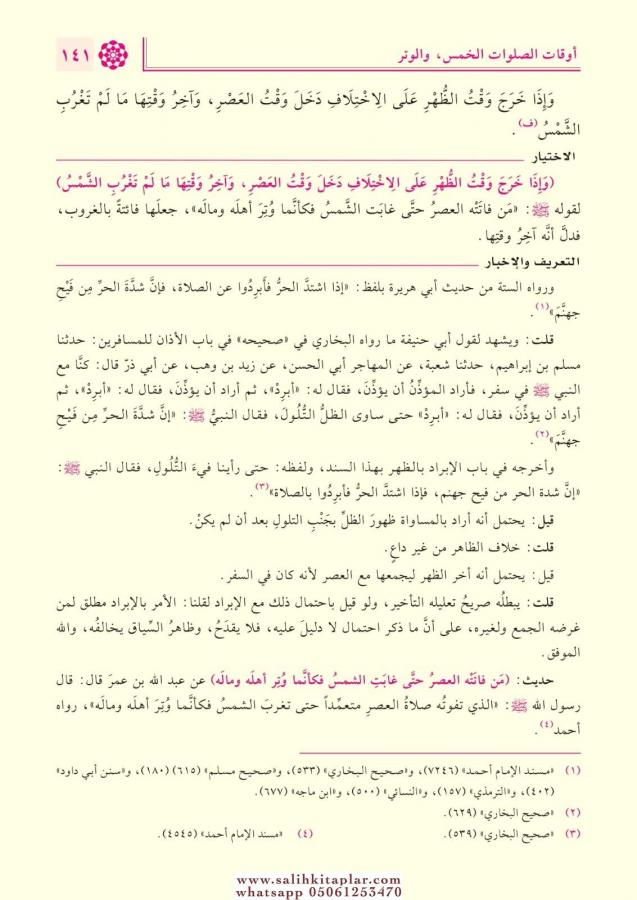 أوقات الصلوات الخمس، والوتر
١٤١
وَإِذَا خَرَجَ وَقْتُ الظُّهْرِ عَلَى الِاخْتِلَافِ دَخَلَ وَقْتُ العَصْرِ، وَآخِرُ وَقْتِهَا مَا لَمْ تَغْرُبِ
الشَّمْسُ (ف).
الاختيار
(وَإِذَا خَرَجَ وَقْتُ الظُّهْرِ عَلَى الِاخْتِلَافِ دَخَلَ وَقْتُ العَصْرِ، وَآخِرُ وَقْتِهَا مَا لَمْ تَغْرُبِ الشَّمْسُ)
لقوله ﷺ: «مَن فاتَتْه العصرُ حتَّى غابَت الشَّمسُ فكأنَّما وُتِرَ أهلَه ومالَه»، جعلَها فائتةً بالغروب،
فدلَّ أنَّه آخِرُ وقتِها.
التعريف والإخبار
ورواه الستة من حديث أبي هريرة بلفظ: «إذا اشتدَّ الحرُّ فأَبرِدُوا عن الصلاة، فإنَّ شدَّةَ الحرِّ مِن فَيْحِ
جهنَّمَ»(١).
قلت: ويشهد لقول أبي حنيفة ما رواه البخاري في «صحيحه» في باب الأذان للمسافرين: حدثنا
مسلم بن إبراهيم، حدثنا شعبة، عن المهاجر أبي الحسن، عن زيد بن وهب، عن أبي ذرّ قال: كنَّا مع
النبي ﷺ في سفر، فأراد المؤذِّنُ أن يؤذِّنَ، فقال له: «أبرِدْ»، ثم أراد أن يؤذِّنَ، فقال له: «أبرِدْ»، ثم
أراد أن يؤذِّنَ، فقال له: «أبرِدْ» حتى ساوى الظلُّ التُّلُولَ، فقال النبيُّ ﷺ: «إنَّ شدَّةَ الحرِّ مِن فَيْحِ
جهنَّمَ»(٢).
وأخرجه في باب الإبراد بالظهر بهذا السند، ولفظه: حتى رأينا فيءَ التُّلُولِ، فقال النبي ﷺ:
«إنَّ شدة الحر من فيح جهنم، فإذا اشتدَّ الحرُّ فأبرِدُوا بالصلاة»(٣).
قيل: يحتمل أنه أراد بالمساواة ظهورَ الظلِّ بجَنْبِ التلولِ بعد أن لم يكنْ.
قلت: خلاف الظاهر من غير داعٍ.
قيل: يحتمل أنه أخر الظهر ليجمعها مع العصر لأنه كان في السفر.
قلت: يبطلُه صريحُ تعليله التأخير، ولو قيل باحتمال ذلك مع الإبراد لقلنا: الأمر بالإبراد مطلق لمن
غرضه الجمع ولغيره، على أنَّ ما ذكر احتمال لا دليلَ عليه، فلا يقدَحُ، وظاهرُ السِّياق يخالفُه، والله
الموفق.
حديث: (مَن فاتَتْه العصرُ حتَّى غابَتِ الشمسُ فكأنَّما وُتِر أهلَه ومالَه) عن عبد الله بن عمرَ قال: قال
رسول الله ﷺ: «الذي تفوتُه صلاةُ العصرِ متعمِّداً حتى تغربَ الشمسُ فكأنَّما وُتِرَ أهلَه ومالَه»، رواه
أحمد(٤).
(١) «مسند الإمام أحمد» (٧٢٤٦)، و«صحيح البخاري» (٥٣٣)، و«صحيح مسلم» (٦١٥) (١٨٠)، و«سنن أبي داود»
(٤٠٢)، و«الترمذي» (١٥٧)، و«النسائي» (٥٠٠)، و«ابن ماجه» (٦٧٧).
(٢) «صحيح البخاري» (٦٢٩).
(٣) «صحيح البخاري» (٥٣٩). (٤) «مسند الإمام أحمد» (٤٥٤٥).
www.salihkitaplar.com
whatsapp 05061253470